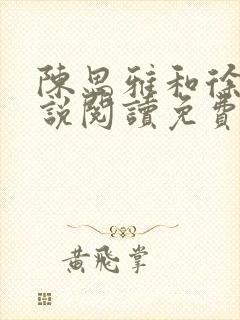 陳思雅和徐
說閱讀免費
黃飛掌